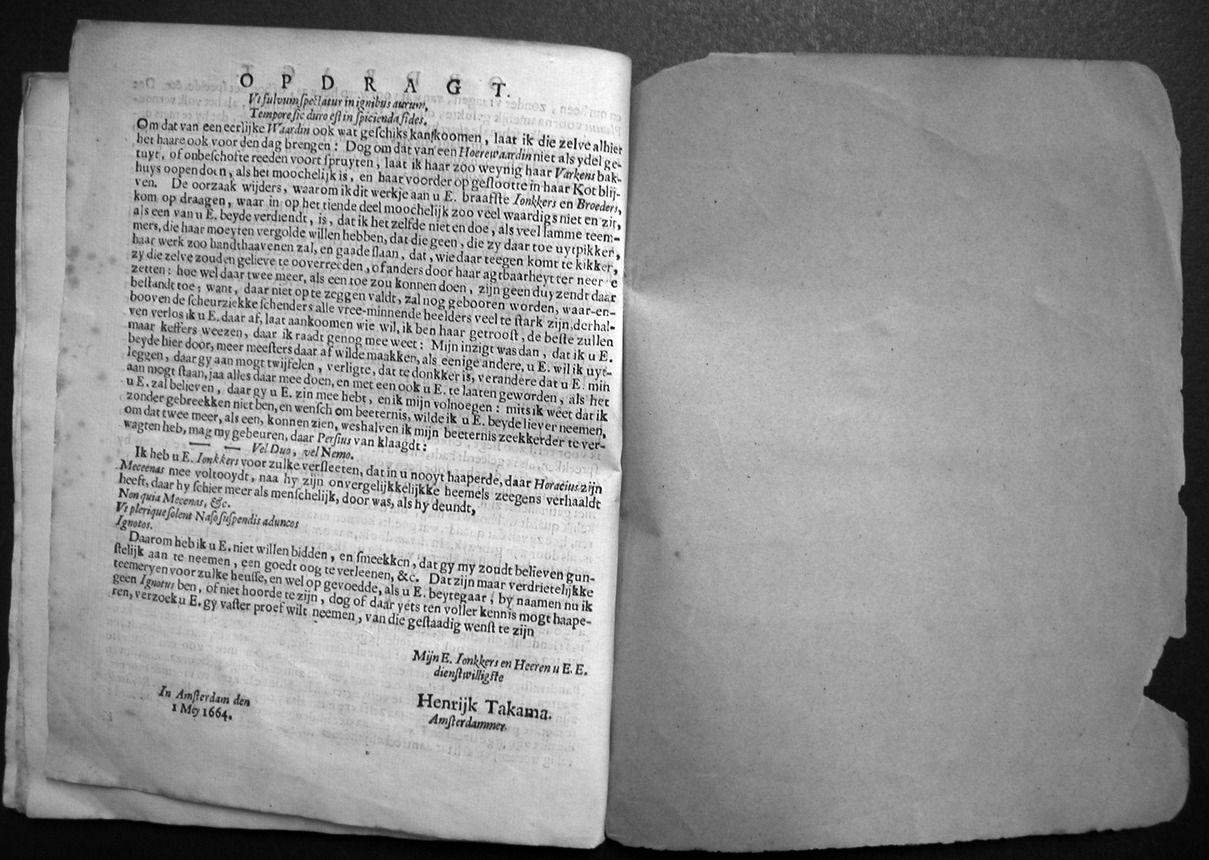 OPDRAGT.
Vt fulvum spectatur in ignibus aurum,
Tempore sic duro est in spicienda fides.
Om dat van een eerlijke Waardin ook wat geschiks kan koomen, laat ik die zelve alhier
het haare ook voor den dag brengen: Dog om dat van een Hoerewaardin niet als ydel ge-
tuyt, of onbeschofte reeden voort spruyten, laat ik haar zoo weynig haar Varkens bak-
huys oopen doen, als het moochelijk is, en haar voorder op geslootte in haar Kot blij-
ven. De oorzaak wijders, waarom ik dit werkje aan u E. braafste Ionkkers en Broeders,
kom op draagen, waar in op het tiende deel moochelijk zoo veel waardigs niet en zit,
als een van u E. beyde verdiendt, is, dat ik het zelfde niet en doe, als veel lamme teem-
mers, die haar moeyten vergolde willen hebben, dat die geen, die zy daar toe uytpikken,
haar werk zoo handthaavenen zal, en gaade slaan, dat, wie daar teegen komt te kikken,
zy die zelve zouden gelieve te ooverreeden, of anders door haar agtbaarheyt ter neer te
zetten: hoe wel daar twee meer, als een toe zou konnen doen, zijn geen duyzendt daar
bestandt toe; want, daar niet op te zeggen valdt, zal nog gebooren worden, waar-en-
booven de scheurziekke schenders alle vree-minnende heelders veel te stark zijn, derhal-
ven verlos ik u E. daar af, laat aankoomen wie wil, ik ben haar getroost, de beste zullen
maar keffers weezen, daar ik raadt genog mee weet: Mijn inzigt was dan, dat ik u E.
beyde hier door, meer meesters daar af wilde maakken, als eenige andere, u E. wil ik uyt-
leggen, daar gy aan mogt twijfelen, verligte, dat te donkker is, verandere dat u E. min
aan mogt staan, jaa alles daar mee doen, en met een ook u E. te laaten geworden, als het
u E. zal believen, daar gy u E. zin mee hebt, en ik mijn volnoegen: mits ik weet dat ik
zonder gebreekken niet ben, en wensch om beeternis, wilde ik u E. beyde liever neemen,
om dat twee meer, als een, konnen zien, weshalven ik mijn beeternis zeekkerder te ver-
wagten heb, mag my gebeuren, daar Persius van klaagdt:
— — Vel Duo, vel Nemo.
Ik heb u E. Ionkkers voor zulke versleeten, dat in u nooyt haaperde, daar Horacius zijn
Meceenas mee voltooydt, naa hy zijn onvergelijkkelijkke heemels zeegens verhaaldt
heeft, daar hy schier meer als menschelijk, door was, als hy deundt,
Non quia Mecenas, &c.
Vt plerique solent Naso suspendis aduncos
Ignotos.
Daarom heb ik u E. niet willen bidden, en smeekken, dat gy my zoudt believen gun-
stelijk aan te neemen, een goedt oog te verleenen, &c. Dat zijn maar verdrietelijkke
teemeryen voor zulke heusse, en wel op gevoedde, als u E. beytegaar, by naamen nu ik
geen Ignotus ben, of niet hoorde te zijn, dog of daar yets ten voller kennis mogt haape-
ren, verzoek u E. gy vaster proef wilt neemen, van die gestaadig wenst te zijn
Mijn E. Ionkkers en Heeren u E. E.
dienstwilligste
Henrijk Takama.
Amsterdammer.
In Amsterdam den
1 Mey 1664.